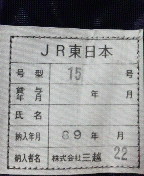 JR東日本
号型 15 号
貸与年月 年 月
氏名
納入年月 89年 月
納入者名 株式会社三越 22